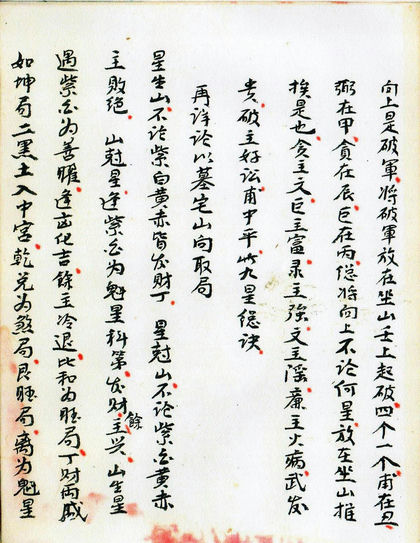 向上是破軍將破軍放在坐山壬上起破四個一个甫在丑
弼在甲貪在辰巨在丙總將向上不論何星放在坐山推
挨是也貪主文巨主富录主強文主淫廉主火病武发
贵破主好讼甫中平此九星總诀
再详论以墓宅山向取局
星生山不论紫白黄赤皆发财丁 星尅山不论紫白黄赤
主敗绝 山尅星逢紫白为魁星科第发财餘主兴 山生星
遇紫白为善曜逢凶化吉餘主冷退比和为旺局丁财両盛
如坤局二黑土入中宫乾兑为煞局艮旺局离为魁星